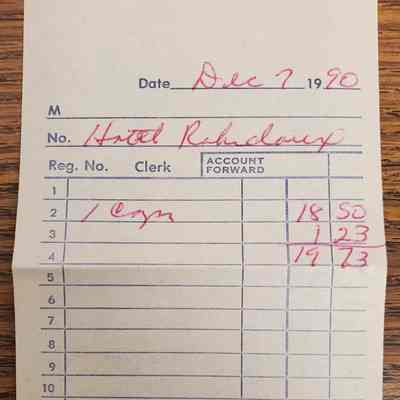 Date Dec 7 1990
M
No. Hotel Robidoux
Reg. No. Clerk ACCOUNT FORWARD
1
2 1 Copy 18 50
3 1 23
4 19 73
5
6
7
8
9
10